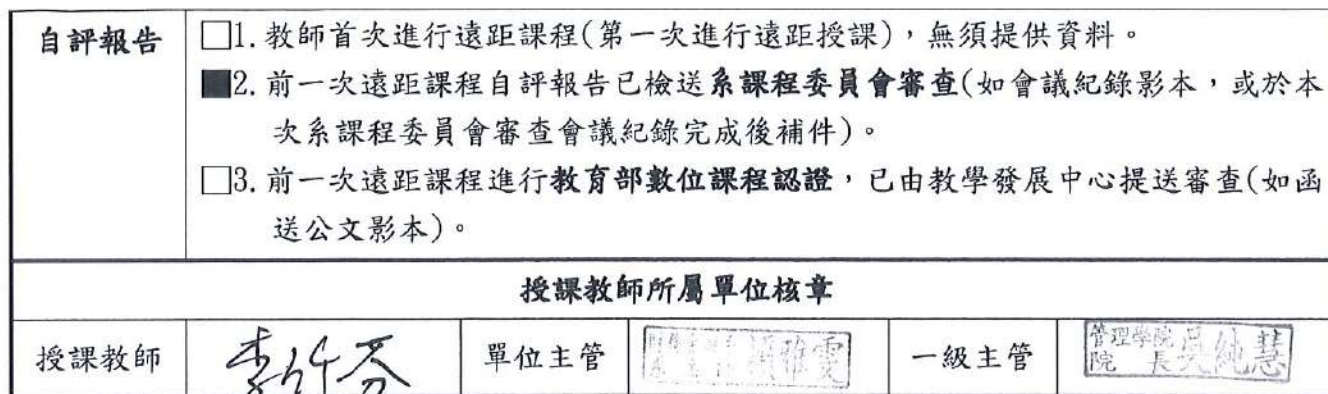 自評報告
□1. 教師首次進行遠距課程(第一次進行遠距授課)，無須提供資料。
■2. 前一次遠距課程自評報告已檢送系課程委員會審查(如會議紀錄影本，或於本
次系課程委員會審查會議紀錄完成後補件)。
□3. 前一次遠距課程進行教育部數位課程認證，已由教學發展中心提送審查(如函
送公文影本)。
授課教師所屬單位核章
授課教師
單位主管
雅雯
一級主管
管理學院
院長
純慧